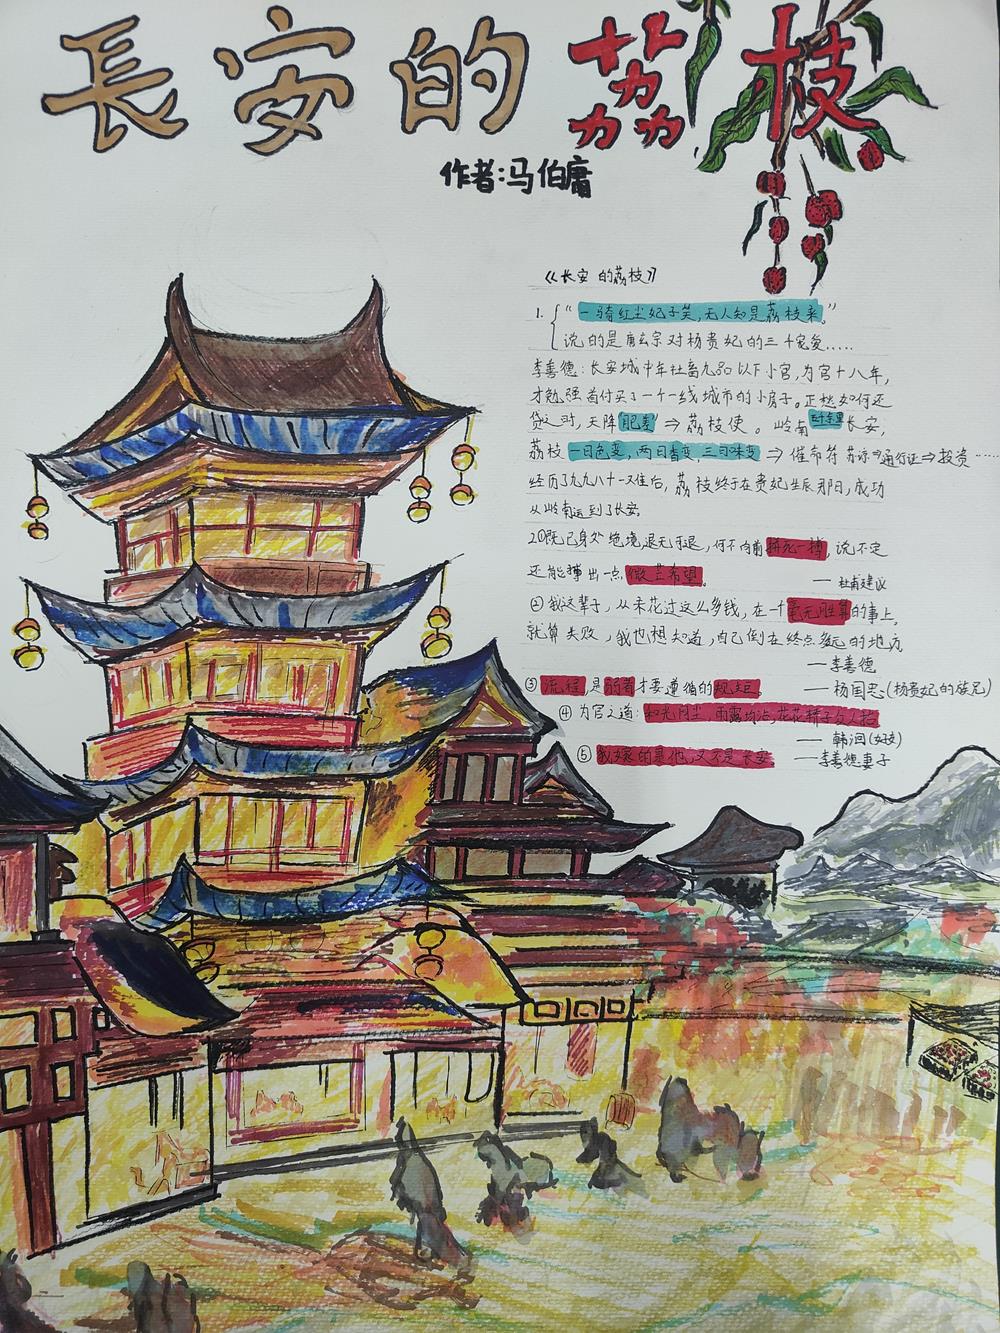 長安的荔枝
作者:马伯庸
《长安的荔枝》
1. “一骑红尘妃子笑,无人知是荔枝来。”
说的是唐玄宗对杨贵妃的三千宠爱.....
李善德:长安城中年社畜九品以下小官,为官十八年,
才勉强首付买了一个一线城市的小房子。正愁如何还
贷之时,天降“肥差”⇒荔枝使。岭南 长安,
荔枝一日色变,两日香变,三日味变⇒ ⇒通行证⇒投资……
经历了九九八十一难后,荔枝终于在贵妃生辰那日,成功
从岭南运到了长安。
2.①既已身处绝境退无可退,何不向前拼死一搏,说不定
还能搏出一点微茫希望。 —杜甫建议
②我这辈子,从未花过这么多钱,在一个毫无胜算的事上,
就算失败,我也想知道,自己倒在终点多远的地方
—李善德
③流程,是弱者才要遵循的规矩。 —杨国忠(杨贵妃的族兄)
④为官之道:和光同尘 雨露均沾,花花轿子众人抬
—韩洄(好友)
⑤我嫁的是他,又不是长安 —李善德妻子